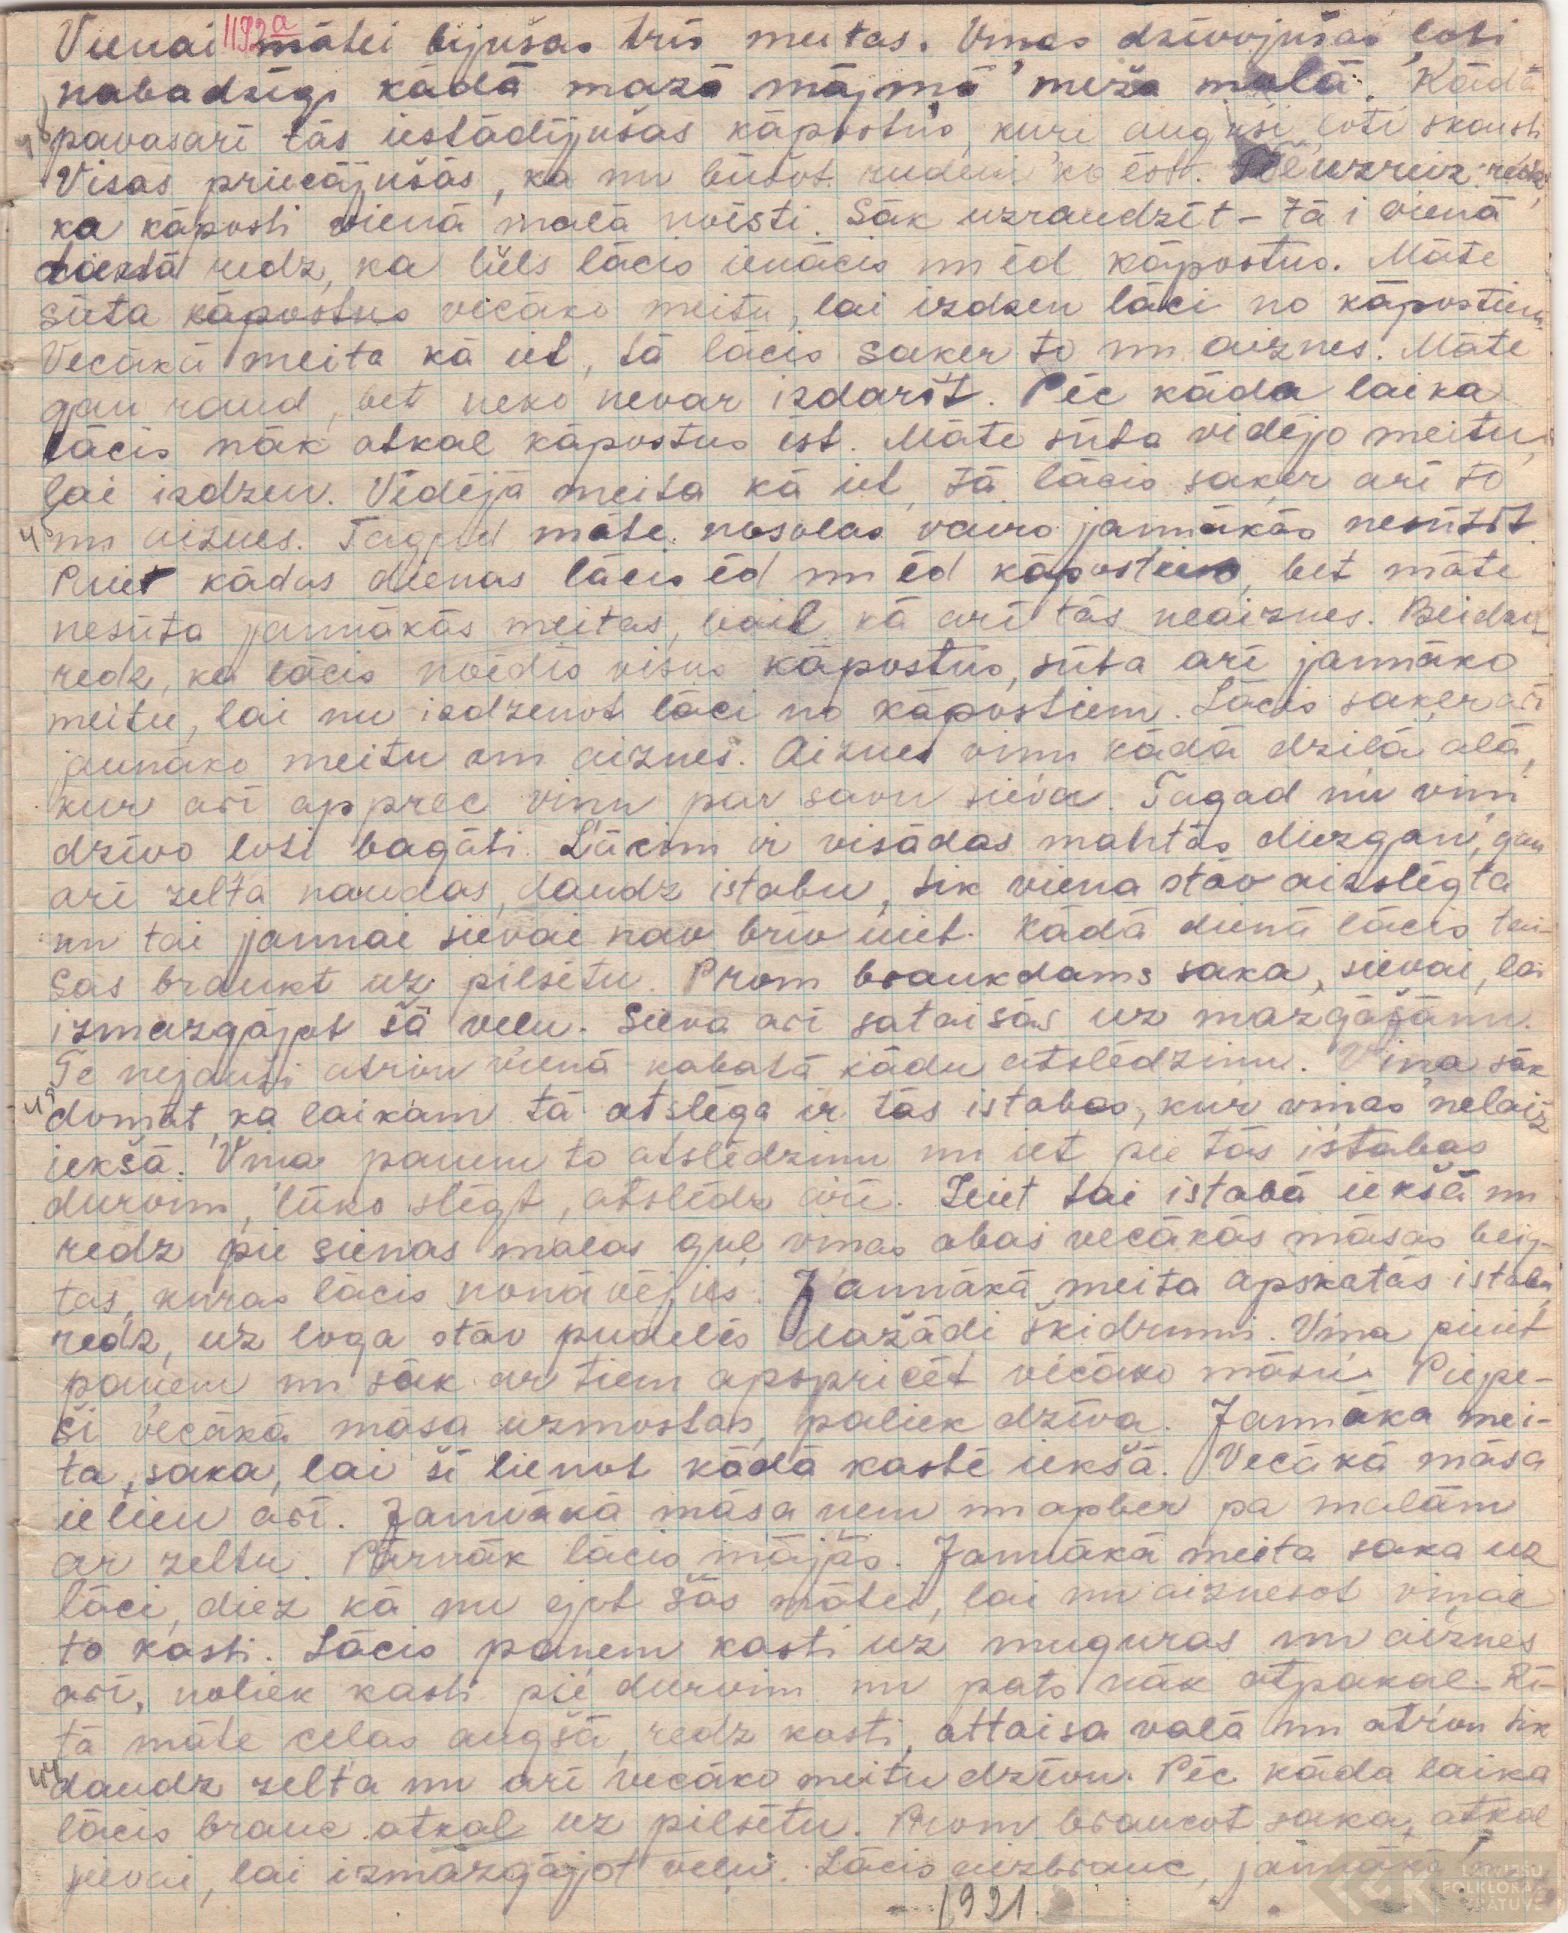 1192a
Vienai mātei bijušas trīs meitas. Viņas dzīvojušas ļoti
nabadzīgi kādā mazā mājiņā meža malā. Kādā
pavasarī tās iestādījušas kāpostus, kuri auguši ļoti skaisti
Visas priecājušās, ka nu būšot rudenī ko ēst. Te uzreiz redz,
ka kāposti vienā malā noēsti. Sāk uzraudzīt – tā i vienā
redz, ka liels lācis ienācis un ēd kāpostus. Māte
sūta kāpostus vecāko meitu, lai izdzen lāci no kāpostiem.
Vecākā meita kā iet, tā lācis saķer to un aiznes. Māte
gan raud, bet neko nevar izdarīt. Pēc kāda laika
lācis nāk atkal kāpostus ēst. Māte sūta vidējo meitu,
lai izdzen. Vidējā meita kā iet, tā lācis saķer arī to
un aiznes. Tagad māte nosolas vairs jaunākās nesūtīt.
Paiet kādas dienas lācis ēd un ēd kāpostus, bet māte
nesūta jaunākās meitas, bail kā arī tās neaiznes. Beidzot
redz, ka lācis noēdis visus kāpostus, sūta arī jaunāko
meitu, lai nu izdzenot lāci no kāpostiem. Lācis saķer arī
jaunāko meitu un aiznes. Aiznes viņu kādā dziļā alā,
kur arī apprec viņu par savu sievu. Tagad nu viņi
dzīvo ļoti bagāti. Lācim ir visādas mantas diezgan, gan
arī zelta naudas, daudz istabu, tik viena stāv aizslēgta
un tai jaunai sievai nav brīv iiet. Kādā dienā lācis tai-
sas braukt uz pilsētu. Prom braukdams saka, sievai, lai
izmazgājot šā veļu. Sieva arī sataisās uz mazgāšanu.
Te nejauši atron vienā kabatā kādu atslēdziņu. Viņa sāk
domāt, ka laikam tā atslēga ir tās istabas, kur viņas nelaiž
iekšā. Viņa paņem to atslēdziņu un iet pie tās istabas
durvim, lūko slēgt, atslēdz arī. Ieiet tai istabā iekšā un
redz pie sienas malas guļ viņas abas vecākās māsas beig-
tas, kuras lācis nonāvējies. Jaunākā meita apskatās istabu,
redz, uz loga stāv pudelēs dažādi šķidrumi. Viņa pieiet
paņem un sāk ar tiem apspricēt vecāko māsu. Piepe-
ši vecākā māsa uzmostas, paliek dzīva. Jaunāka mei-
ta, saka, lai šī lienot kādā kastē iekšā. Vecākā māsa
ielien arī. Jaunākā māsa ņem un apber pa malām
ar zeltu. Pārnāk lācis mājās. Jaunākā meita saka uz
lāci, diez kā nu ejot šās mātei, lai nu aiznesot viņai
to kasti. Lācis paņem kasti uz muguras un aiznes
arī, noliek kasti pie durvim un pats nāk atpakaļ. Rī-
tā māte ceļas augšā, redz kasti, attaisa vaļā un atron tik
daudz zelta un arī vecāko meitu dzīvu. Pēc kāda laika
lācis brauc atkal uz pilsētu. Prom braucot saka, atkal
sievai, lai izmazgājot veļu. Lācis aizbrauc, jaunākā
1921.
LATVIEŠU
FOLKLORAS
KRĀTUVE